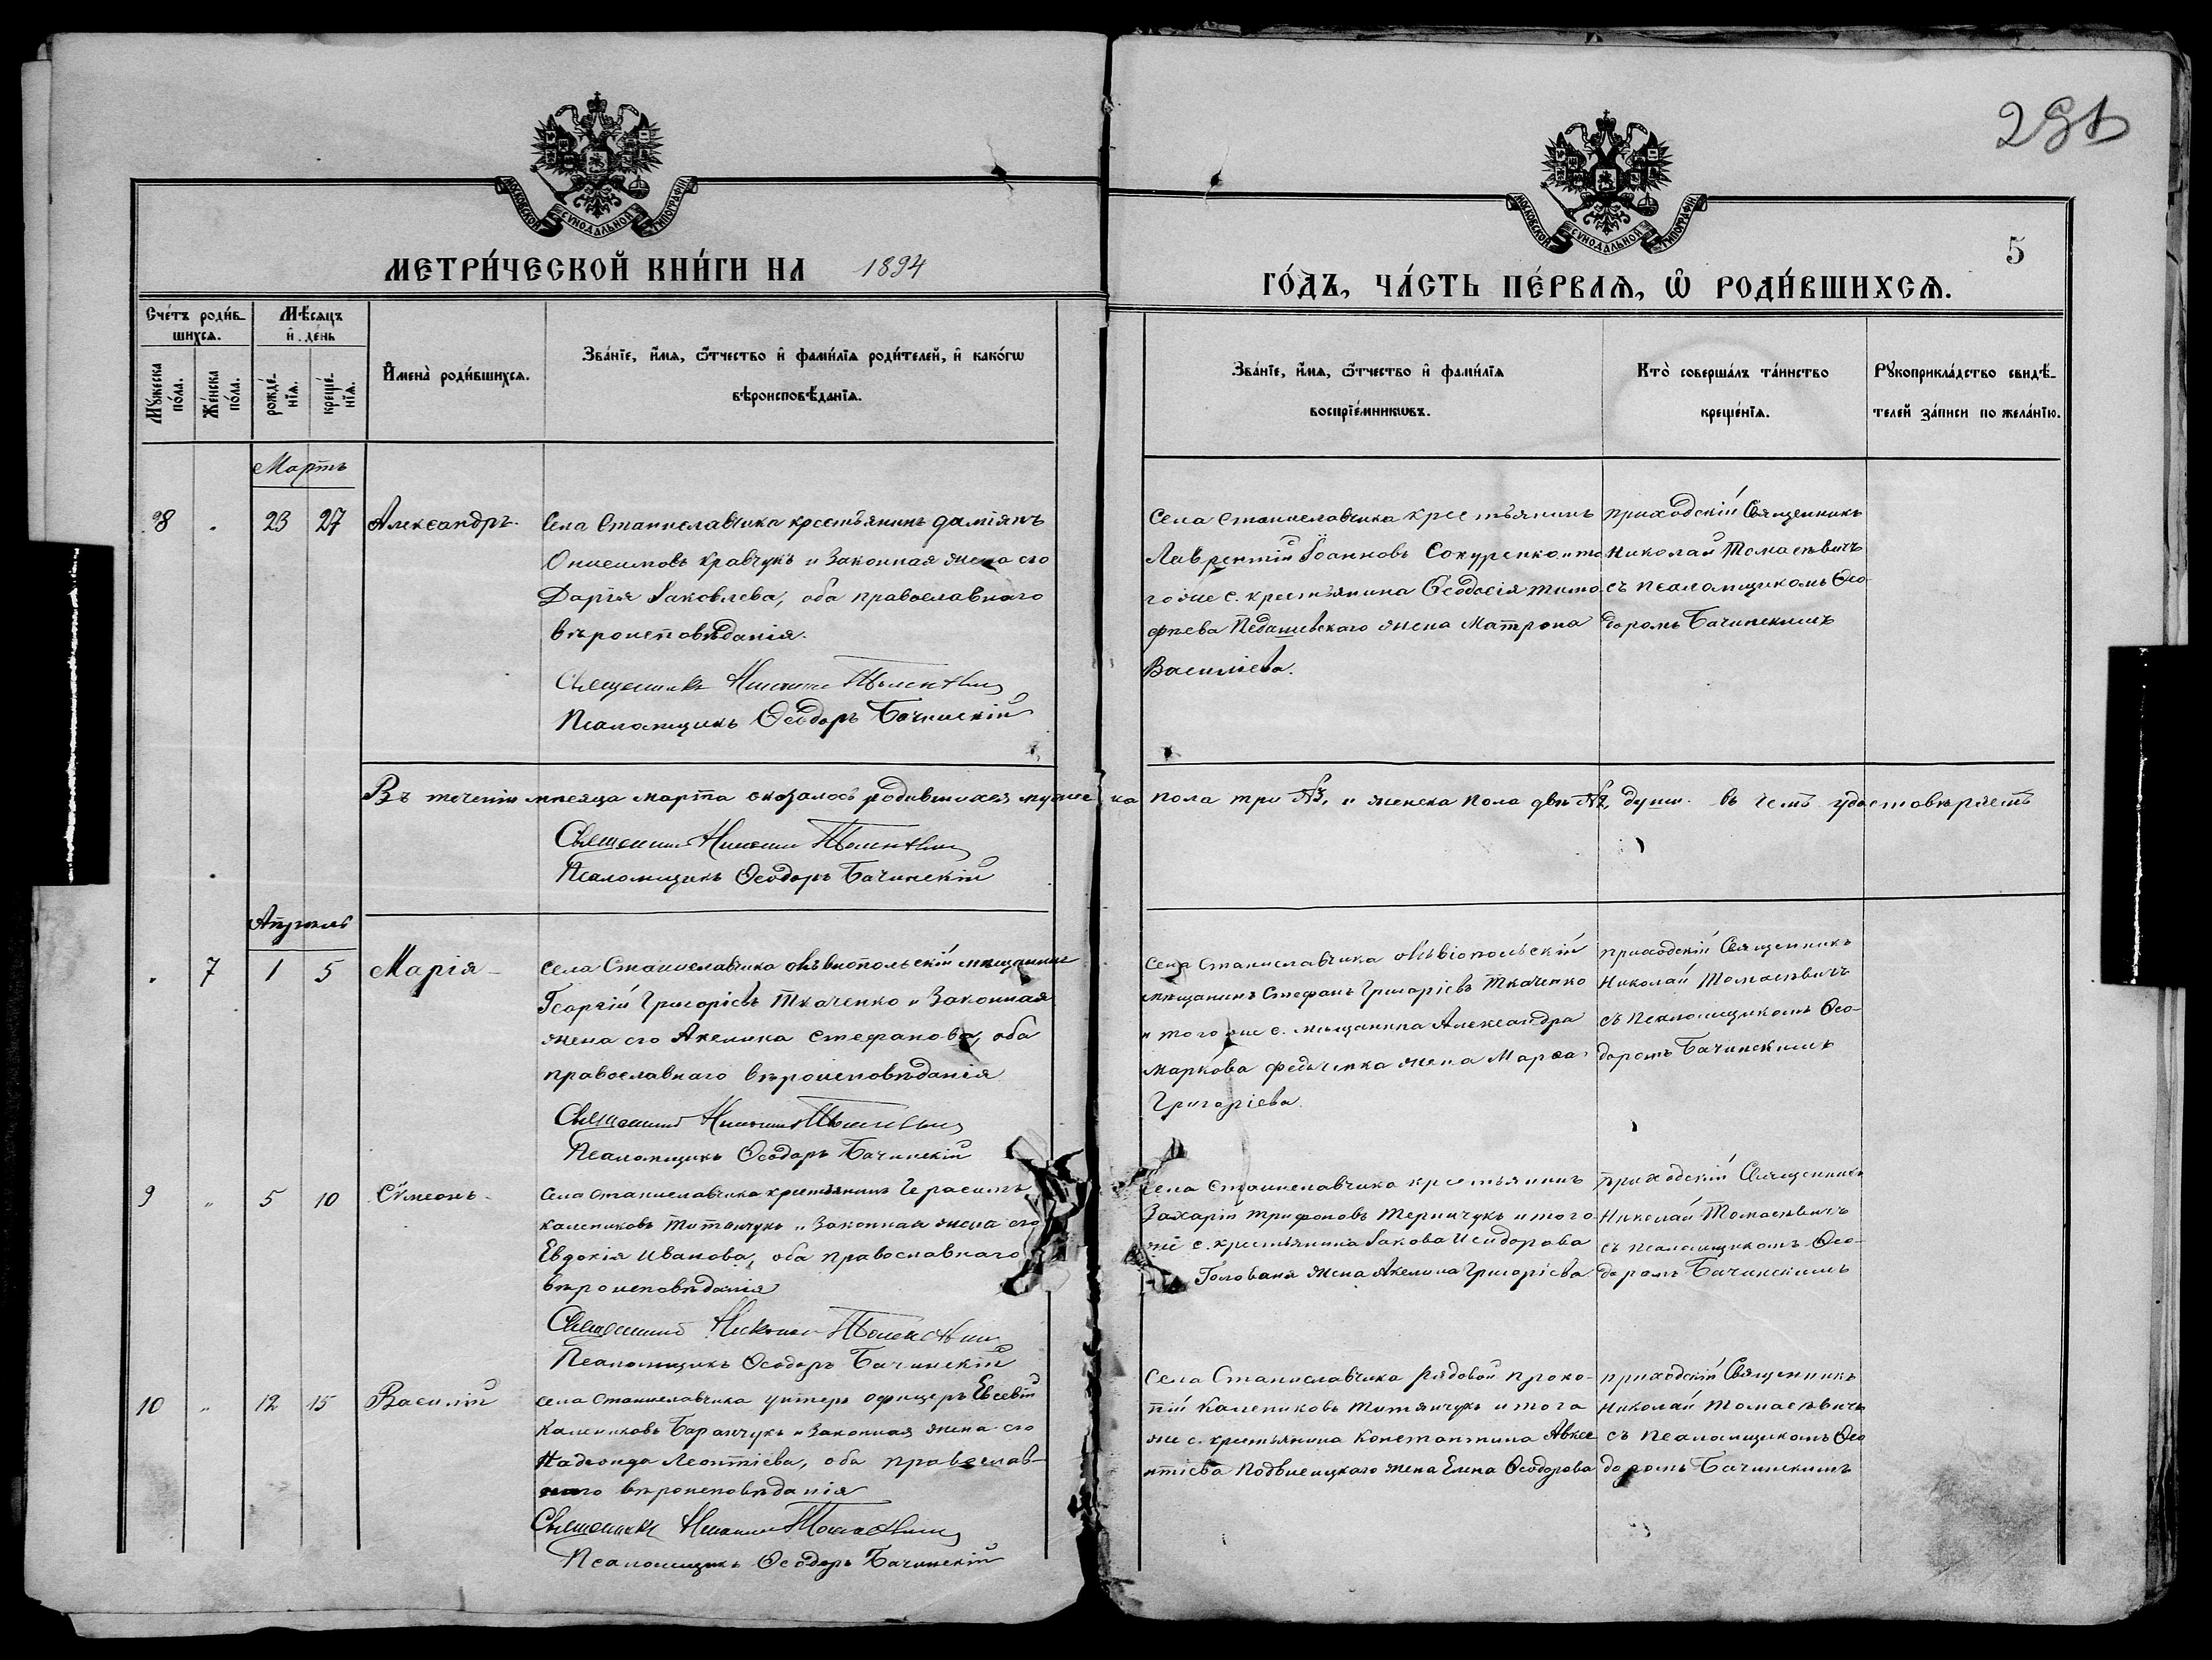 281
МОСКОВСКОЙ СУНОДАЛЬНОЙ ТИПОГРАФІИ
МОСКОВСКОЙ СУНОДАЛЬНОЙ ТИПОГРАФІИ
5
МЕТРИ́ЧЕСКОЙ КНИ́ГИ НА 1894
ГО́ДЪ, ЧА́СТЬ ПЕ́РВАѦ, Ѡ҆ РОДИ́ВШИХСѦ.
Сче́тъ роди́вшихсѧ.
Мѣ́сѧцъ и҆ де́нь
Мꙋ́жеска по́ла.
Же́нска по́ла.
рожде́нїѧ.
креще́нїѧ.
И҆мена̀ роди́вшихсѧ.
Зва́нїе, и҆́мѧ, ѻ҆́тчество и҆ фами́лїѧ роди́телей, и҆ како́гѡ
вѣроисповѣ́данїѧ.
Зва́нїе, и҆́мѧ, ѻ҆́тчество и҆ фами́лїѧ
воспрїе́мникѡвъ.
Кто̀ соверша́лъ та́инство
креще́нїѧ.
Рꙋкоприкла́дство свидѣ́-
телей за́писи по жела́нїю.
Мартъ
8 23 27 Александръ. Села Станиславчика крестьянинъ Даміянъ
Онисимовъ Кравчукъ и законная жена его
Дарія Іаковлева, оба православнаго
вѣроисповѣданія.
Священникъ Николай Томасѣвич
Псаломщикъ Ѳеодоръ Бачинскій
Села Станиславчика крестьянинъ
Лаврентій Іоанновъ Сокуренко и то
го же с. крестьянина Ѳеодосія Тимо
фѣева Педашевскаго жена Матрона
Василіева.
приходскій Священникъ
Николай Томасѣвичъ
съ псаломщикомъ Ѳео-
доромъ Бачинскимъ
Въ теченіи мѣсяца марта оказалось родившихся мужеска пола три №3, и женска пола двѣ №2, души. въ чемъ удостовѣряемъ
Священникъ Николай Томасѣвич
Псаломщикъ Ѳеодоръ Бачинскій
Апрѣль
7 1 5 Марія Села Станиславчика Ольвіопольскій мѣщанинъ
Георгій Григоріевъ Ткаченко и законная
жена его Акилина Стефанова, оба
православнаго вѣроисповѣданія
Священникъ Николай Томасѣвич
Псаломщикъ Ѳеодоръ Бачинскій
Села Станиславчика Ольвіопольскій
мѣщанинъ Стефанъ Григоріевъ Ткаченко
и того же с. мѣщанина Александра
Маркова жена Марѳа
Григоріева.
приходскій Священникъ
Николай Томасѣвичъ
съ псаломщикомъ Ѳео-
доромъ Бачинскимъ
9 " 5 10 Сѵмеонъ Села Станиславчика крестьянинъ Герасимъ
Калениковъ Титянчукъ и законная жена его
Евдокія Иванова, оба православнаго
вѣроисповѣданія
Священникъ Николай Томасѣвич
Псаломщикъ Ѳеодоръ Бачинскій
Села Станиславчика крестьянинъ
Захарій Трифоновъ и того
же с. крестьянина Іакова Исидорова
Голована жена Акилина Григоріева
приходскій Священникъ
Николай Томасѣвичъ
съ псаломщикомъ Ѳео-
доромъ Бачинскимъ
10 " 12 15 Василій Села Станиславчика унтеръ офицеръ Евсевій
Калениковъ Баранчукъ и законная жена его
Надежда Леонтіева, оба православ-
наго вѣроисповѣданія
Священникъ Николай Томасѣвич
Псаломщикъ Ѳеодоръ Бачинскій
Села Станиславчика рядовой Проко-
пій Калениковъ Титянчукъ и того
же с. крестьянина Константина Авксе
нтіева Подвысицкаго жена Елена Ѳеодорова
приходскій Священникъ
Николай Томасѣвичъ
съ псаломщикомъ Ѳео
доромъ Бачинскимъ